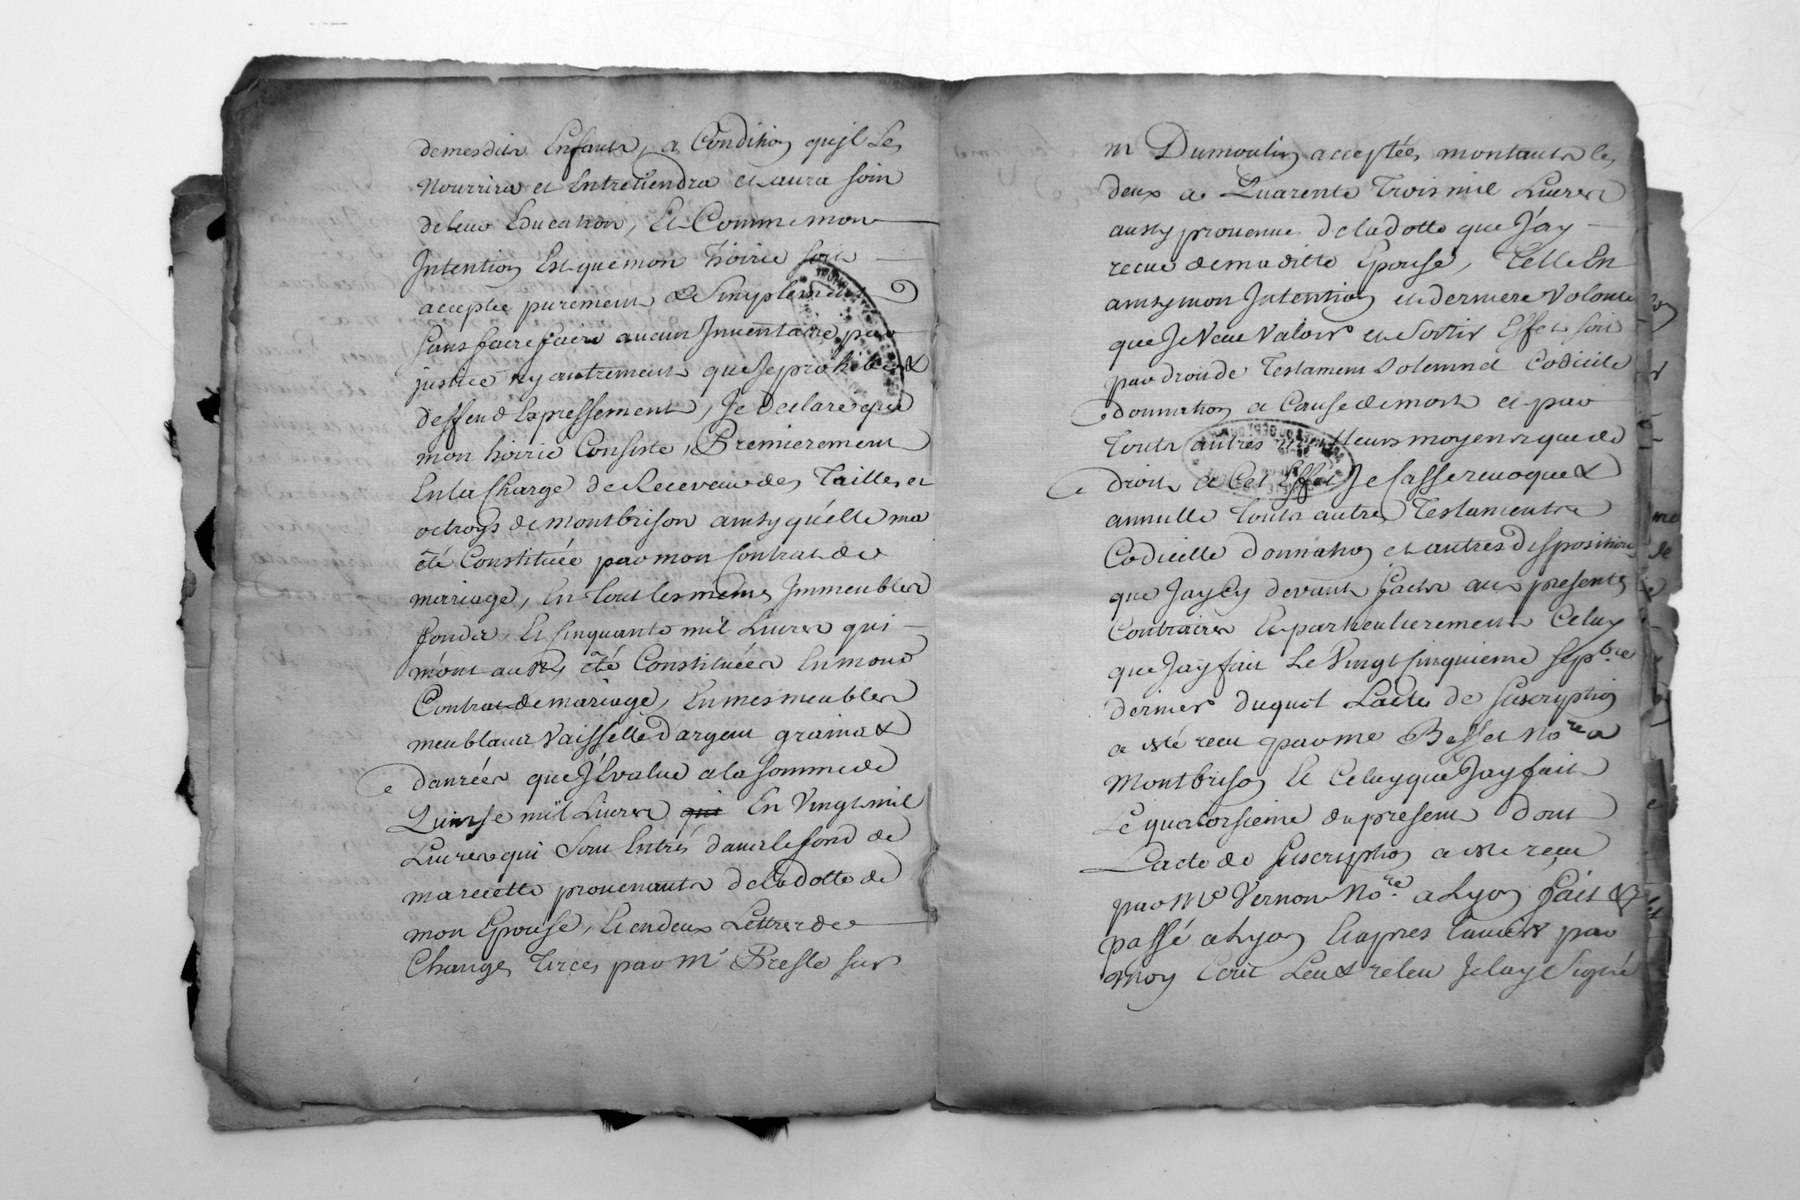 demesdits Enfants, a Condition qu'jl Les
Nourrira et Entretiendra et aura soin
deleur Education, Et Comme mon
Intention Est que mon hoirie soit
acceptée purement & Simplement
sans faire faire aucun Inventaire par
justice ny autrement que Je prohibe &
deffend Expressement, Je declare que
mon hoirie Consiste, Premierement
En la Charge de Receveur des Tailles et
octroys de montbrison ainsy qu'elle ma
été Constituée par mon Contrat de
mariage, En tout les memes Jmmeubles
fonds, Et Cinquante mil Livres qui
m'ont aussy été Constituées En mond
Contrat de mariage, En mes meubles
meublans Vaisselle d'argent grains &
danrées que J'Evalue a la somme de
Quinse mil Livres qui En Vingt mil
Livres qui Sont Entrés dans le fond de
ma recette provenants de la dotte de
mon Epouse, Et en deux Lettres de
Change, Tirées par Mr Presle sur
mr Dumoulin acceptées montants les
deux a Quarente Trois mil Livres
aussy provenue de la dotte que J'ay
recue de maditte Epouse, Telle En
ainsy mon Intention et derniere Volonté
que Je Veux Valoir et Sortir Effet soit
par droit de Testament Solemnel Codicile
donnation a Cause de mort et par
touts autres meilleurs moyens que de
droit a Cet Effet Je Casse revoque &
annulle touts autres Testaments
Codicille donnation et autres disposition
que J'ay Cy devant faits aux presentes
Contraires Et particulierement Celuy
que J'ay fait Le Vingt Cinquieme Sepbre
dernier duquel L'acte de Suscription
a esté recu par Me Besset Nore a
Montbrison Et Celuy que J'ay fait
Le quatorsieme du present dont
L'acte de Suscription a esté reçu
par Me Vernon Nore a Lyon fait &
passé a Lyon Et apres L'avoir par
moy Ecrit Leu & releu Je l'ay Signé